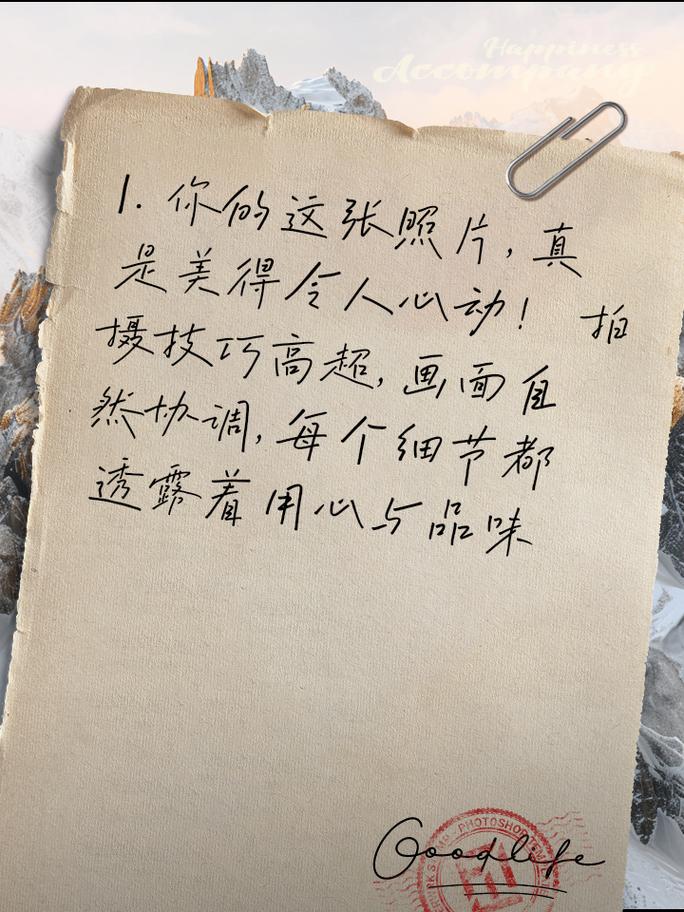 Happiness
Accompany
1. 你的这张照片，真
是美得令人心动！ 拍
摄技巧高超，画面自
然协调，每个细节都
透露着用心与品味
PHOTOSHOP
Goodlife